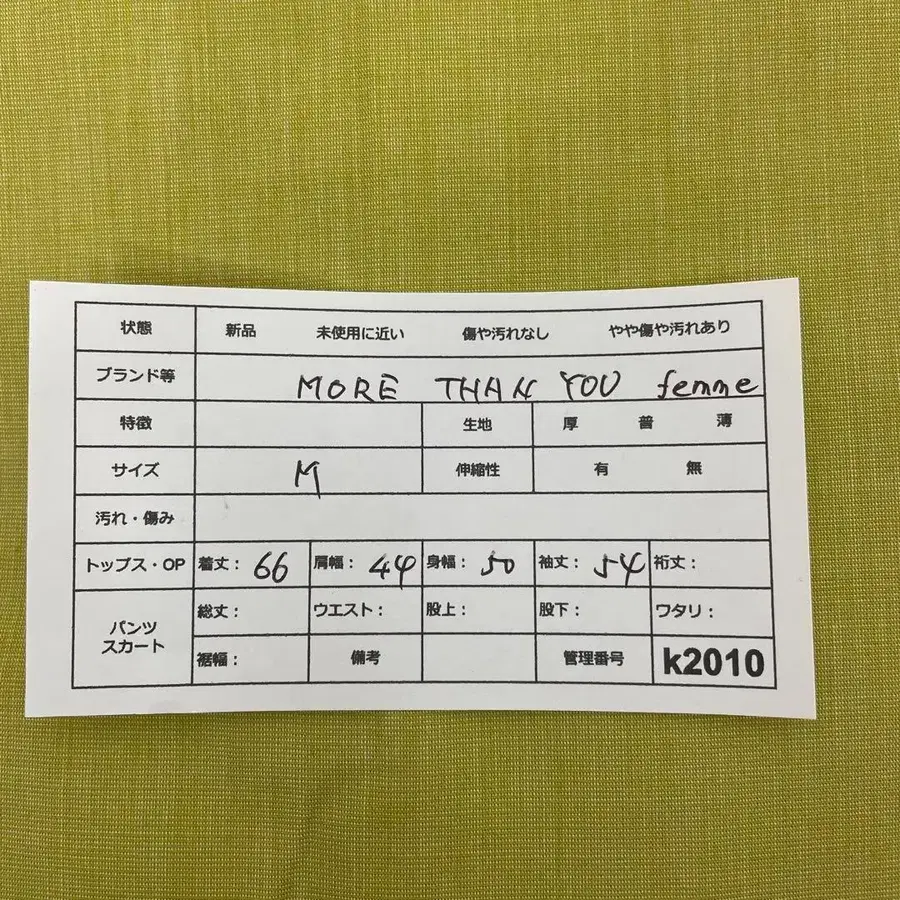 状態 新品 未使用に近い 傷や汚れなし やや傷や汚れあり
ブランド等 MORE THAN YOU femme
特徴 生地 厚 普 薄
サイズ M 伸縮性 有 無
汚れ・傷み
トップス・OP 着丈： 66 肩幅： 44 身幅： 50 袖丈： 54 裄丈：
パンツ スカート 総丈： ウエスト： 股上： 股下： ワタリ：
裾幅： 備考 管理番号 k2010